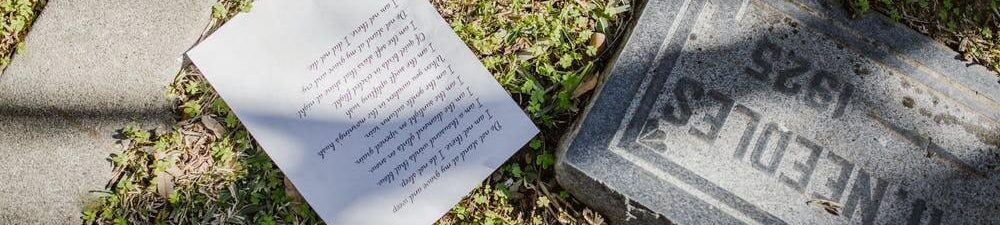 Do not stand at my grave and weep
I am not there. I do not sleep.
I am a thousand winds that blow.
I am the diamond glints on snow.
I am the sunlight on ripened grain.
I am the gentle autumn rain.
When you awaken in the mornings hush
I am the swift uplifting rush
Of quiet birds in circled flight.
I am the soft stars that shine at night.
Do not stand at my grave and cry
I am not there. I did not die.
H. NEEDLES
1925